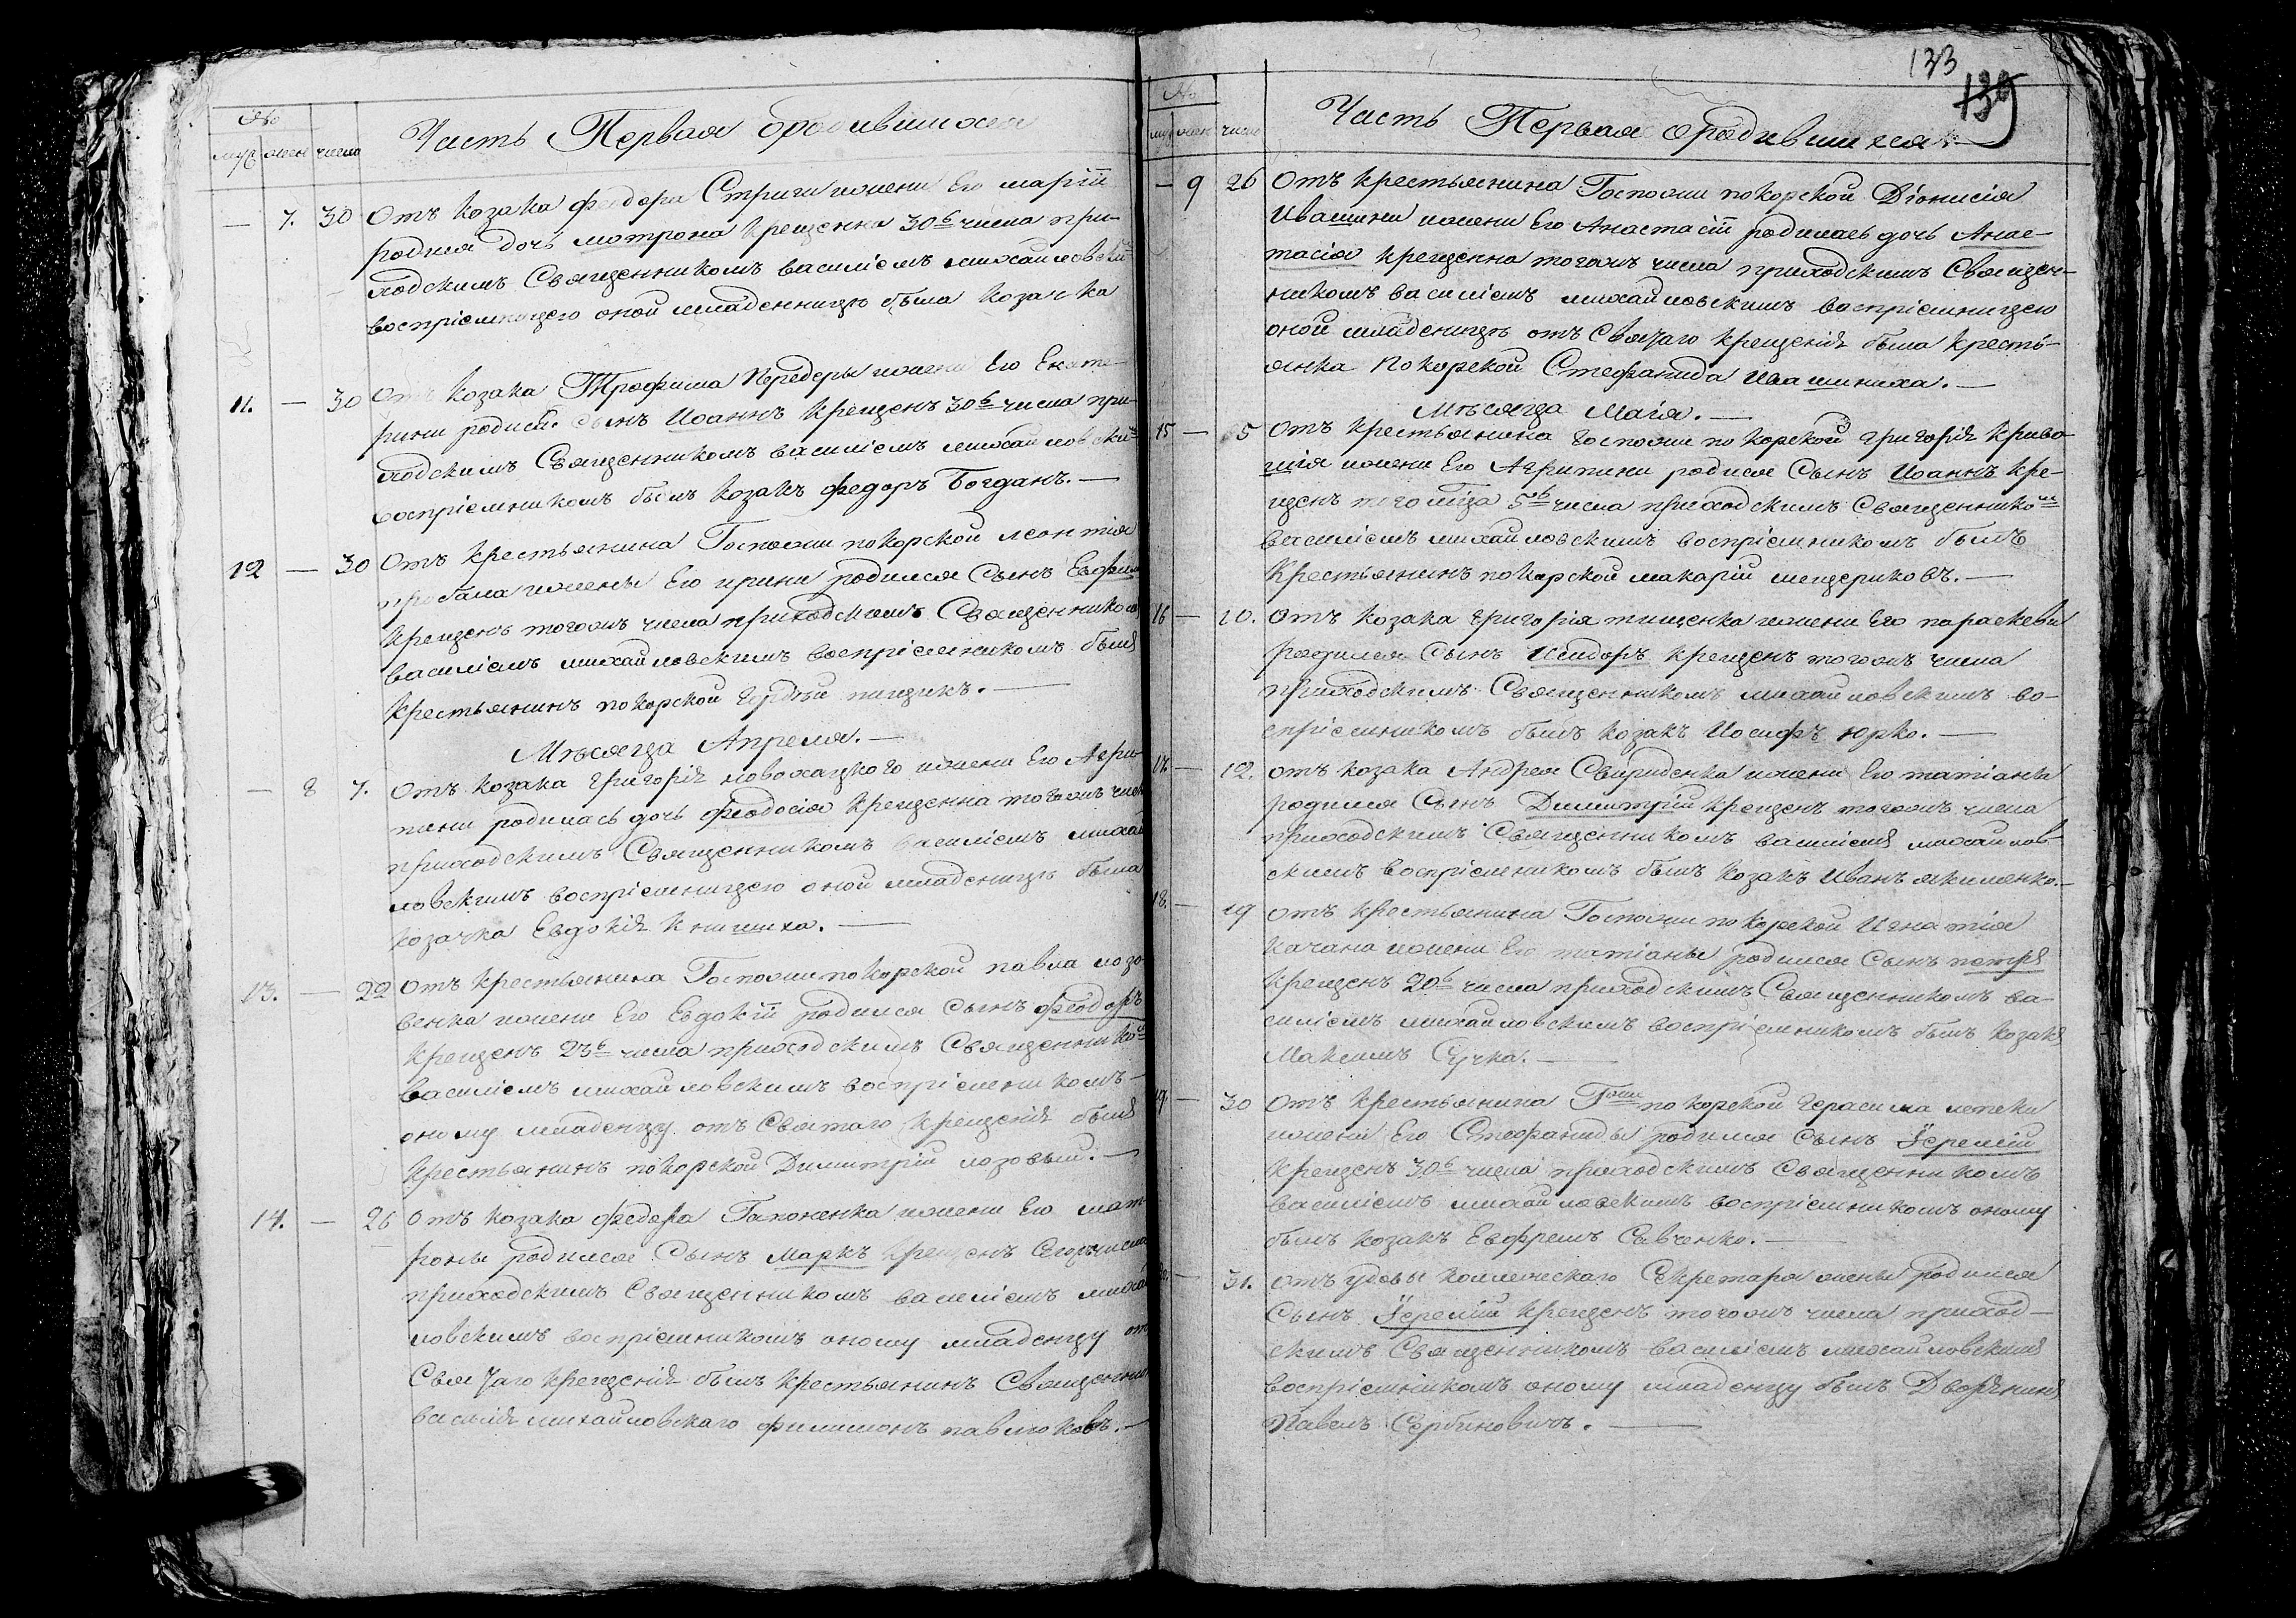 №
муж жен число
Часть Первая о родившихся
— 7. 30 Отъ козака Феодора Стриги жени Его маріи
родися дочь матрона крещенна 30ᵒ числа при-
ходскимъ Священникомъ василіемъ михайловски
воспріемницею оной младенницы была козачка
11. — 30 Отъ козака Трофима Передеры жени Его Екате-
рини родися сынъ Иоаннъ крещенъ 30ᵒ числа при-
ходскимъ Священникомъ василіемъ михайловским
воспріемникомъ былъ козакъ федоръ Богданъ. —
12 — 30 Отъ крестьянина Госпожи покорской леонтія
жены Его ирини родился Сынъ Евфим
крещенъ тогожъ числа приходскимъ Священником
василіемъ михайловскимъ воспріемникомъ былъ
крестьянинъ покорской гордѣй пиндикъ. —
Мѣсяца Апреля. —
— 8 7. Отъ козака григорія новохацкого жени Его Агри-
пини родилась дочь феодосія крещенна тогожъ числ
приходскимъ Священникомъ василіемъ михай
ловскимъ воспріемницею оной младеницы была
козачка Евдокія Книшиха. —
13. — 22 Отъ крестьянина Госпожи покорской павла лозо
венка жени Его Евдокіи родился сынъ феодоръ
крещенъ 23ᵒ числа приходскимъ Священником
василіемъ михайловскимъ воспріемникомъ —
оному младенцу отъ Святаго крещенія былъ
крестьянинъ покорской Димитрій лозовый. —
14. — 26 Отъ козака федора Гапоненка жени Его мат-
роны родился Сынъ Маркъ крещенъ Егожъ числа
приходскимъ Священникомъ василіемъ михай
ловскимъ воспріемникомъ оному младенцу от
Святаго крещенія былъ крестьянинъ Священника
василія михайловскаго филимонъ павлюковъ. —
133
139
№
муж жен число
Часть Первая о родившихся. —
— 9 26 Отъ крестьянина Госпожи покорской Діонисія
Ивашини жени Его Анастасіи родилась дочь Анас-
тасія крещенна тогожъ числа приходскимъ Священ-
никомъ василіемъ михайловскимъ воспріемницею
оной младеницы отъ Святаго крещенія была кресть-
янка Покорской Стефанида Ивашиниха. —
Мѣсяца Маія. —
15 — 5 Отъ крестьянина Госпожи покорской григорія криво-
шія жени Его Агрипини родился Сынъ Иоаннъ кре-
щенъ того мца 5ᵒ числа приходскимъ Священником
василіемъ михайловскимъ воспріемникомъ былъ
крестьянинъ покорской макарій шендериковъ. —
16 — 10. Отъ козака григорія тищенка жени Его параскеви
родился Сынъ Исидоръ крещенъ тогожъ числа
приходскимъ Священникомъ михайловскимъ во-
спріемникомъ былъ козакъ Иосифъ юрко. —
17. — 12. Отъ козака Андрея Свириденка жени Его татіаны
родился Сынъ Димитрій крещенъ тогожъ числа
приходскимъ Священникомъ василіемъ михайлов-
скимъ воспріемникомъ былъ козакъ Иванъ якименко. —
18. — 19 Отъ крестьянина Госпожи покорской Игнатія
Качана жени Его татіаны родился Сынъ петръ
крещенъ 20ᵒ числа приходскимъ Священникомъ ва-
силіемъ михайловскимъ воспріемникомъ былъ козакъ
Максимъ Сучка. —
19. — 30 Отъ крестьянина Гжи покорской герасима лепехи
жени Его Стефаниды родился сынъ Іеремій
крещенъ 30ᵒ числа приходскимъ Священникомъ
василіемъ михайловскимъ воспріемникомъ оному
былъ козакъ Евфремъ Савченко. —
— 31. Отъ удовы коллежскаго Секретара родился
Сынъ Іеремій крещенъ тогожъ числа приход-
скимъ Священникомъ василіемъ михайловскимъ
воспріемникомъ оному младенцу былъ Дворянинъ
Павелъ Сербиновичъ. —